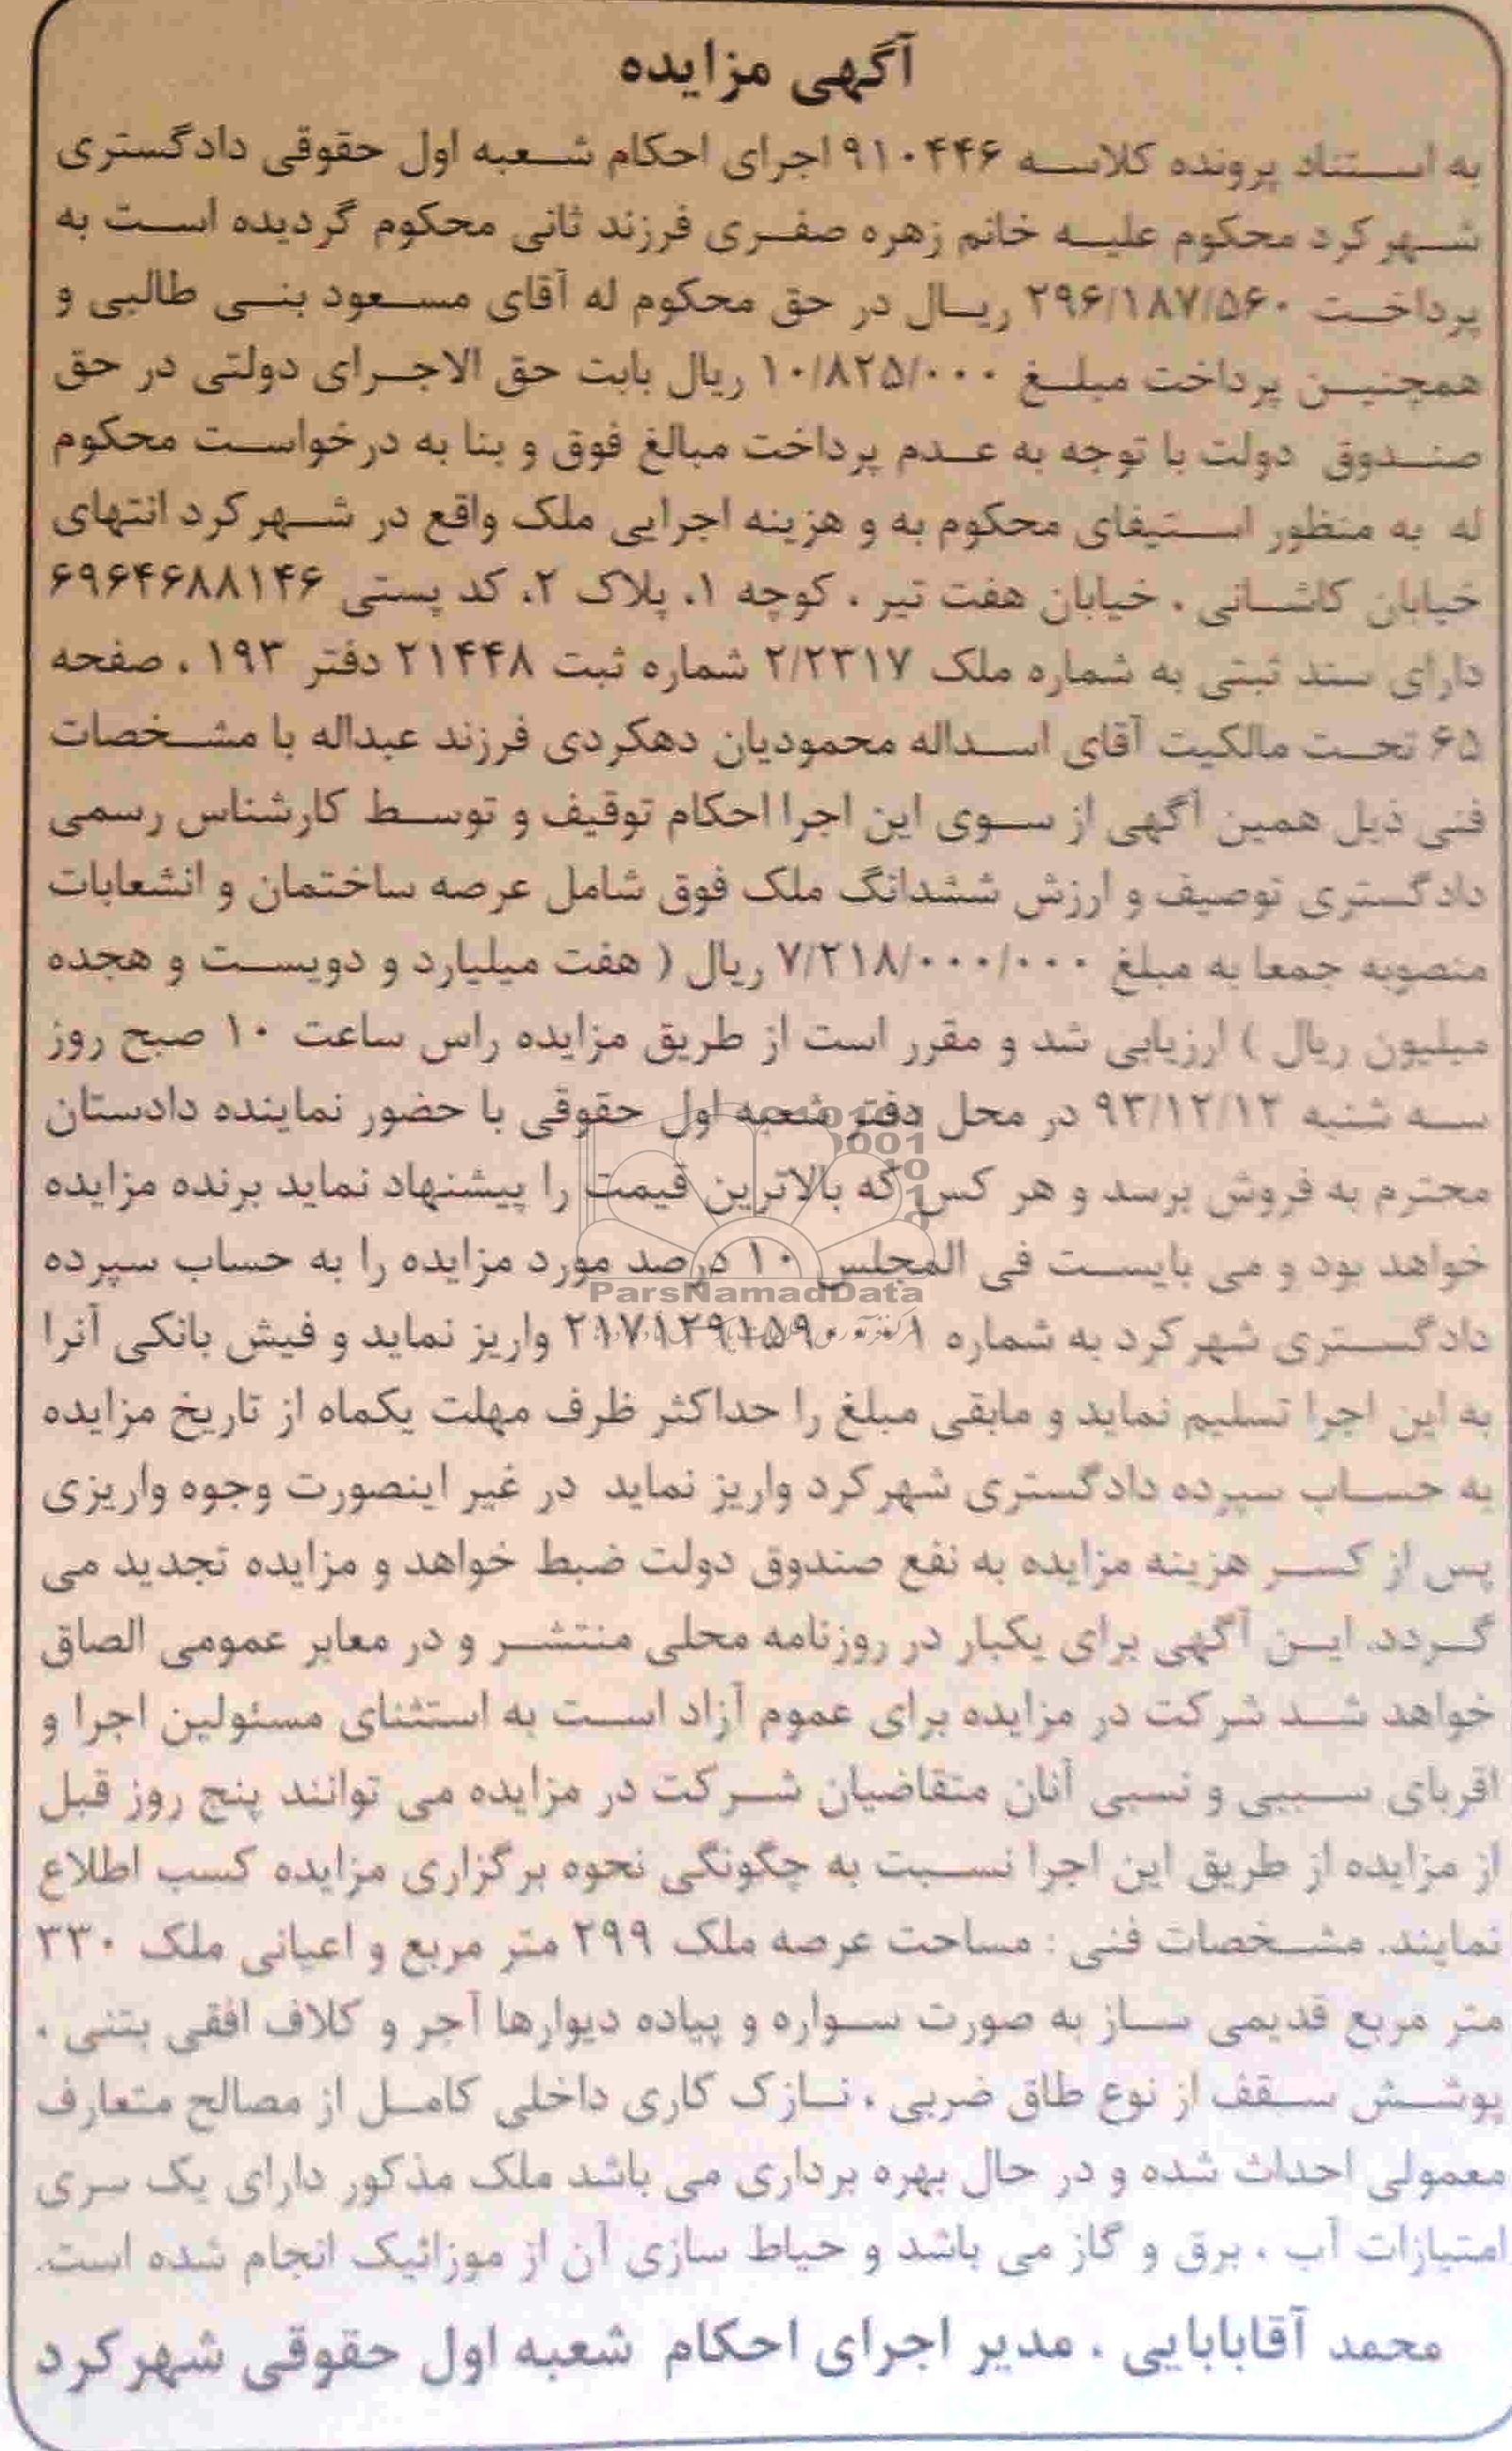 آگهی مزایده
به استناد پرونده کلاسه ۹۱۰۴۴۶ اجرای احکام شعبه اول حقوقی دادگستری
شهر کرد محکوم علیه خانم زهره صفری فرزند ثانی محکوم گردیده است به
پرداخت ۲۹۶/۱۸۷/۵۶۰ ریال در حق محکوم له آقای مسعود بنی طالبی و
همچنین پرداخت مبلغ ۱۰/۸۲۵/۰۰۰ ریال بابت حق الاجرای دولتی در حق
صندوق دولت با توجه به عدم پرداخت مبالغ فوق و بنا به درخواست محکوم
له به منظور استیفای محکوم به و هزینه اجرایی ملک واقع در شهرکرد انتهای
خیابان کاشانی ، خیابان هفت تیر ، کوچه ۱، پلاک ۲، کد پستی ۶۹۶۴۶۸۸۱۴۶
دارای سند ثبتی به شماره ملک ۲/۲۳۱۷ شماره ثبت ۲۱۴۴۸ دفتر ۱۹۳ ، صفحه
۶۵ تحت مالکیت آقای اسداله محمودیان دهکردی فرزند عبداله با مشخصات
فنی ذیل همین آگهی از سوی این اجرا احکام توقیف و توسط کارشناس رسمی
دادگستری توصیف و ارزش ششدانگ ملک فوق شامل عرصه ساختمان و انشعابات
منصوبه جمعا به مبلغ ۷/۲۱۸/۰۰۰/۰۰۰ ریال ( هفت میلیارد و دویست و هجده
میلیون ریال ) ارزیابی شد و مقرر است از طریق مزایده راس ساعت ۱۰ صبح روز
سه شنبه ۹۳/۱۲/۱۲ در محل دفتر شعبه اول حقوقی با حضور نماینده دادستان
محترم به فروش برسد و هر کس که بالاترین قیمت را پیشنهاد نماید برنده مزایده
خواهد بود و می بایست فی المجلس ۱۰ درصد مورد مزایده را به حساب سپرده
ParsNamadData
دادگستری شهرکرد به شماره ۲۱۷۱۲۹۱۵۹۰۰۰۱ واریز نماید و فیش بانکی آنرا
به این اجرا تسلیم نماید و مابقی مبلغ را حداکثر ظرف مهلت یکماه از تاریخ مزایده
به حساب سپرده دادگستری شهرکرد واریز نماید در غیر اینصورت وجوه واریزی
پس از کسر هزینه مزایده به نفع صندوق دولت ضبط خواهد و مزایده تجدید می
گردد. این آگهی برای یکبار در روزنامه محلی منتشر و در معابر عمومی الصاق
خواهد شد شرکت در مزایده برای عموم آزاد است به استثنای مسئولین اجرا و
اقربای سببی و نسبی آنان متقاضیان شرکت در مزایده می توانند پنج روز قبل
از مزایده از طریق این اجرا نسبت به چگونگی نحوه برگزاری مزایده کسب اطلاع
نمایند. مشخصات فنی : مساحت عرصه ملک ۲۹۹ متر مربع و اعیانی ملک ۳۳۰
متر مربع قدیمی ساز به صورت سواره و پیاده دیوارها آجر و کلاف افقی بتنی ،
پوشش سقف از نوع طاق ضربی ، نازک کاری داخلی کامل از مصالح متعارف
معمولی احداث شده و در حال بهره برداری می باشد ملک مذکور دارای یک سری
امتیازات آب ، برق و گاز می باشد و حیاط سازی آن از موزائیک انجام شده است.
محمد آقابابایی ، مدیر اجرای احکام شعبه اول حقوقی شهرکرد